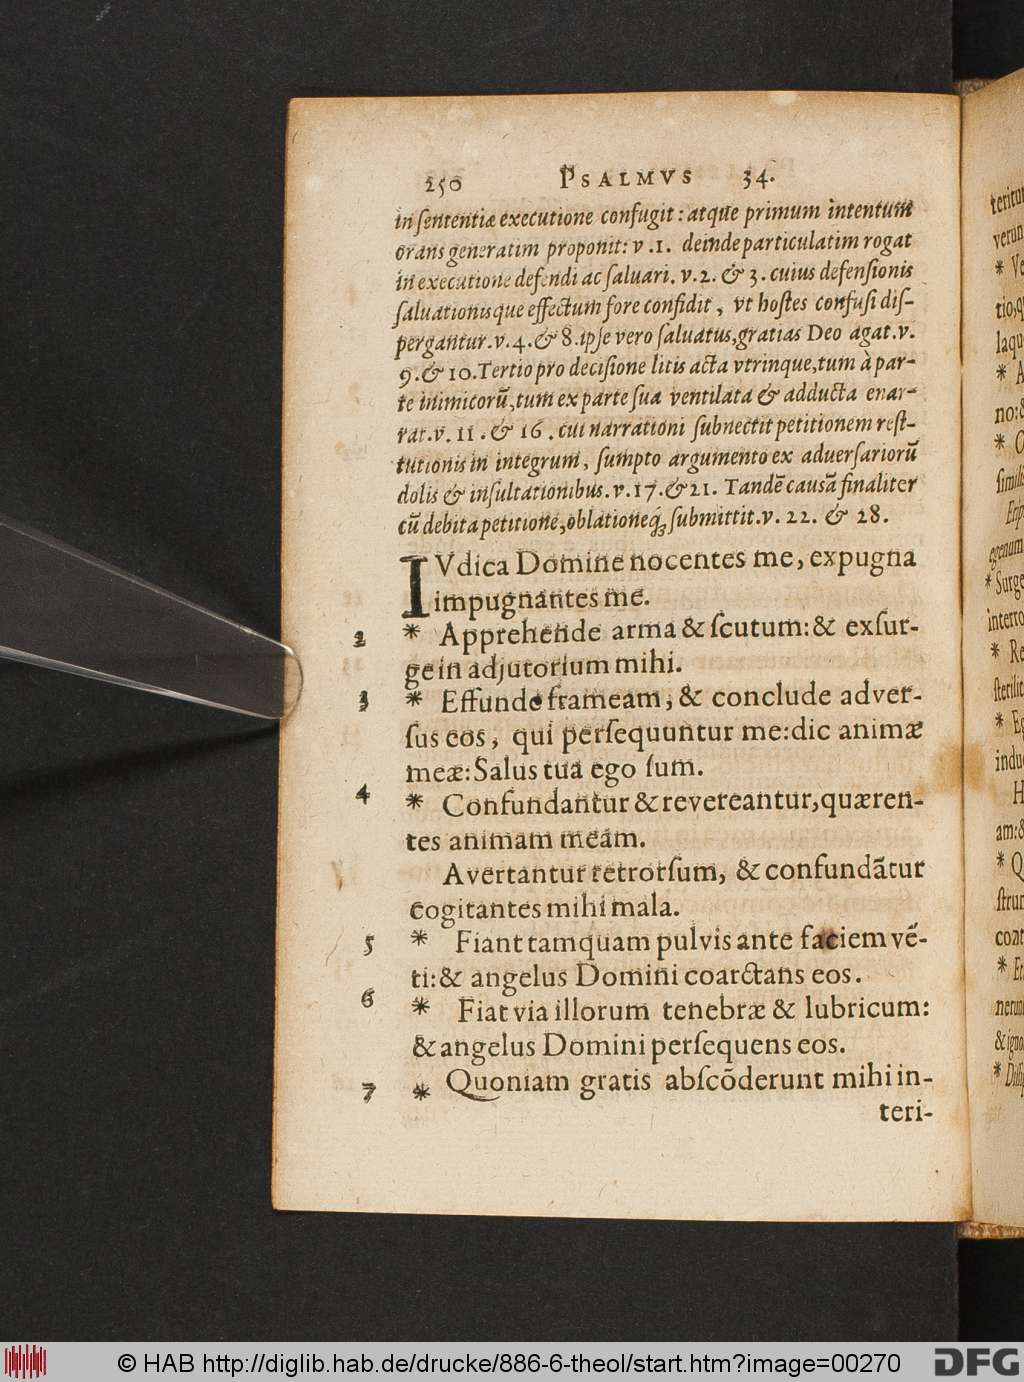 250 PSALMVS 34.
in sententiæ executione confugit: atque primum intentum
orans generatim proponit: v.1. deinde particulatim rogat
in executione defendi ac saluari. v.2. & 3. cuius defensionis
saluationisque effectum fore confidit, vt hostes confusi dis-
pergantur. v.4. & 8. ipse vero saluatus, gratias Deo agat. v.
9. & 10. Tertio pro decisione litis acta vtrinque, tum à par-
te inimicorū, tum ex parte sua ventilata & adducta enar-
rat. v. 11. & 16. cui narrationi subnectit petitionem rest-
tutionis in integrum, sumpto argumento ex aduersariorū
dolis & insultationibus. v.17. & 21. Tandē causā finaliter
cū debita petitione, oblationeq́; submittit. v. 22. & 28.
IVdica Domine nocentes me, expugna
impugnantes me.
2 * Apprehende arma & scutum: & exsur-
ge in adjutorium mihi.
3 * Effunde frameam, & conclude adver-
sus eos, qui persequuntur me: dic animæ
meæ: Salus tua ego sum.
4 * Confundantur & revereantur, quæren-
tes animam meam.
Avertantur retrorsum, & confundātur
cogitantes mihi mala.
5 * Fiant tamquam pulvis ante faciem vē-
ti: & angelus Domini coarctans eos.
6 * Fiat via illorum tenebræ & lubricum:
& angelus Domini persequens eos.
7 * Quoniam gratis abscōderunt mihi in-
teri-
teritu
verun
* Ve
tio, q
laqu
* A
no: &
simili
Erip
egenum
* Surge
interro
* Re
sterilit
* Eg
indu
H
am: &
* Q
strun
coat
nerun
& igno
* Dissi
© HAB http://diglib.hab.de/drucke/886-6-theol/start.htm?image=00270
DFG